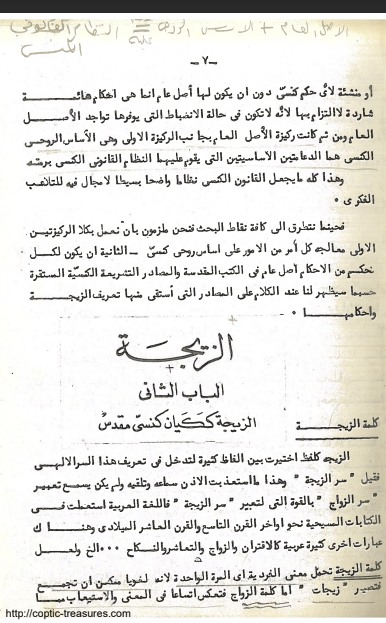 الاصل العام + الاساس الروحى = النظام القانونى
عليه
الكنسى
-٧-
أو منشئة لأى حكم كنسى دون ان يكون لها أصل عام انما هى أحكام هائمــة
شاردة لا التزام بها لأنه لا تكون فى حالة الانضباط التى يوفرها تواجد الأصـل
العام ومن ثم كانت ركيزة الأصل العام بجانب الركيزة الاولى وهى الأساس الروحى
الكنسى هما الدعامتين الاساسيتين التى يقوم عليهما النظام القانونى الكنسى برمته
وهذا كله مايجعل القانون الكنسى نظاما واضحا بسيطا لا مجال فيه للتلاعب
الفكرى ٠
فحينما نتطرق الى كافة نقاط البحث فنحن ملزمون بان نعمل بكلا الركيزتيـن
الاولى معالجه كل أمر من الامور على اساس روحى كنسى – الثانية ان يكون لكـل
حكم من الاحكام أصل عام فى الكتب المقدسة والمصادر التشريعة الكنسية المستقرة
حسبما سيظهر لنا عند الكلام على المصادر التى أستقى منها تعريف الزيجـة
واحكامهـا ٠
الزيجــة
الباب الثانى
الزيجة ككيان كنسى مقدس
كلمة الزيجــة
الزيجه كلفظ اختيرت بين الفاظ كثيرة لتدخل فى تعريف هذا السر الالهى
فقيل " سر الزيجة " وهذا ما استعذبت الاذن سماعه وتلقيه ولم يكن يسمح تعبير
" سر الزواج " بالقوة التى لتعبير " سر الزيجة " فاللغة العربية استعملت فـى
الكتابات المسيحية نحو اواخر القرن التاسع والقرن العاشر الميلادى وهنـاك
عبارات أخرى كثيرة عربية كالاقتران والزواج والتعاشر والنكاح ٠٠٠ الخ ولعـل
كلمة الزيجة تحمل معنى الفردية أى المرة الواحدة لانه لغويا ممكن ان تجمـع
فتصير " زيجات " اما كلمة الزواج فتعكس اتساعا فى المعنى والاستيعاب ممـا
http://coptic-treasures.com